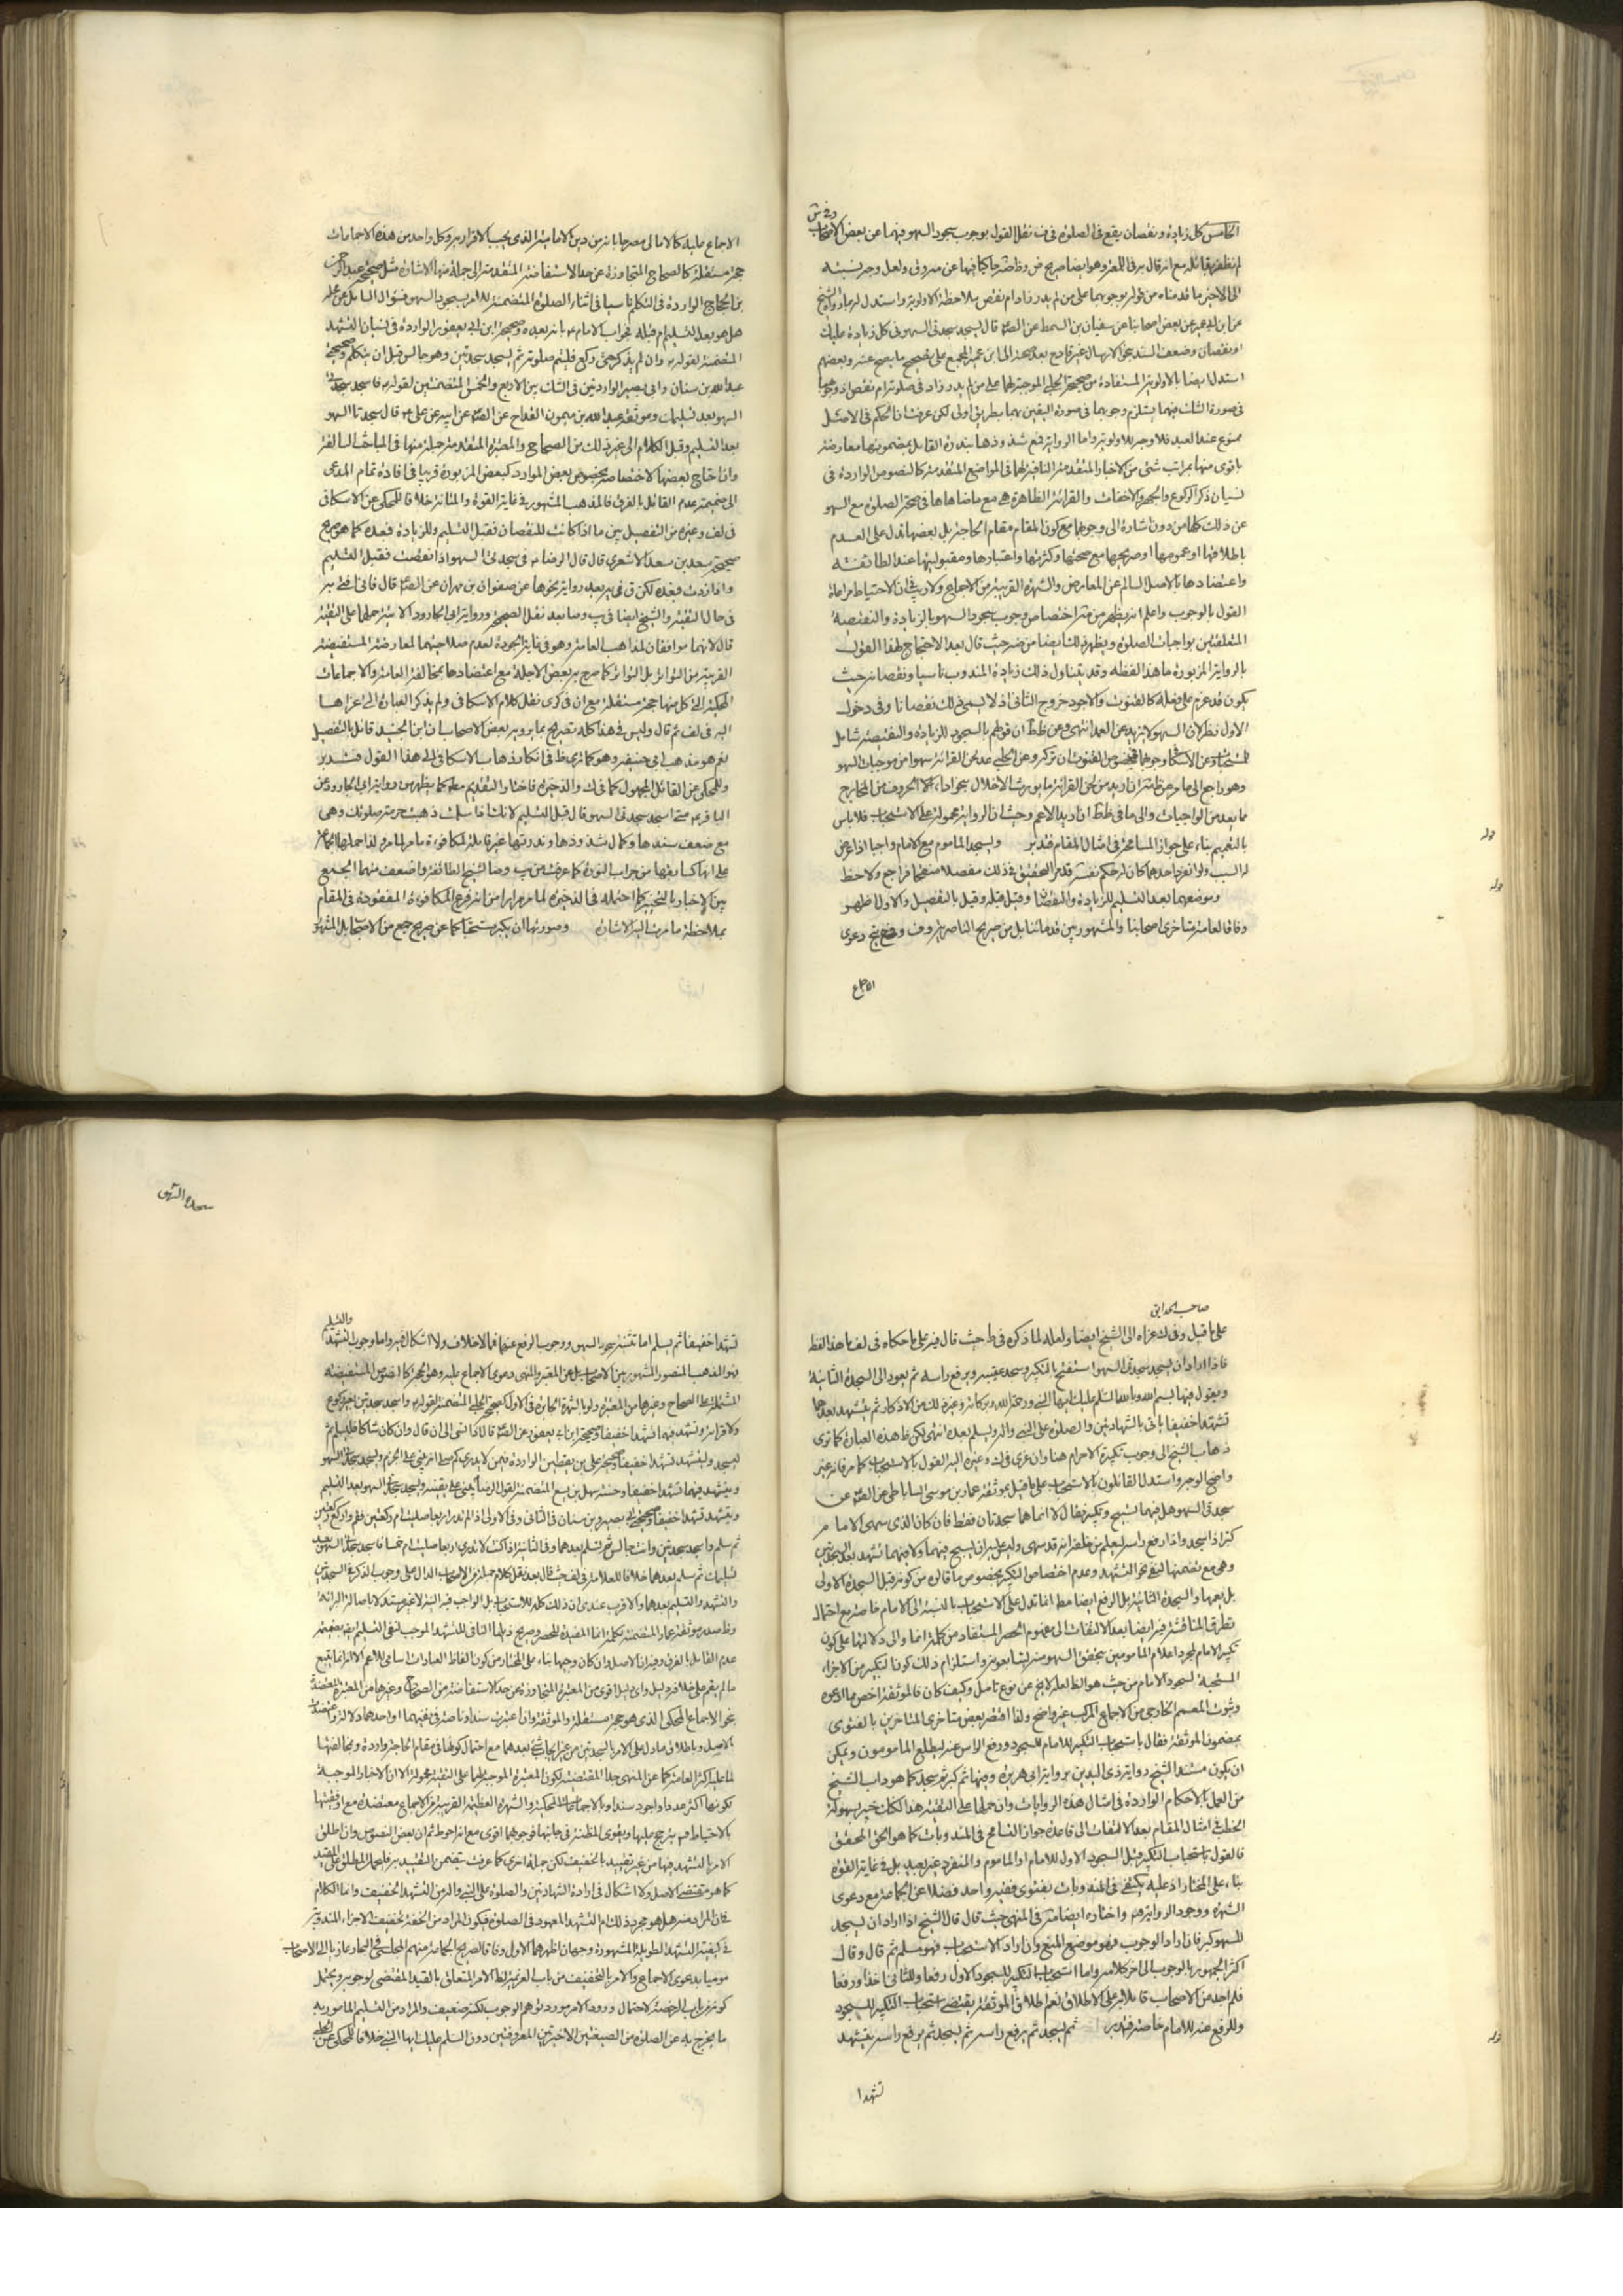 وفى ش
الخامس كل زيادة ونقصان يقع فى الصلوة فى نقل القول بوجوب سجود السهو فيهما عن بعض الاصحاب
لم نظفر بقائله مع انه قال به فى اللمعة وهو ايضا صريح
الى الاخير ما قدمناه من قوله بوجوبهما على من لم يدر زاد ام نقص بملاحظة الاولوية واستدل له بما رواه الشيخ
عن ابن ابى عمير عن بعض اصحابنا عن سفيان بن السمط عن الصه قال تسجد سجدتى السهو فى كل زيادة عليك
او نقصان وضعف السند بالارسال غير قادح بعد صحته الى ابن عمير المجمع على تصحيح ما يصح عنه وبعضهم
استدل ايضا بالاولوية المستفادة من صحيحة الحلبى الموجبة لهما على من لم يدر زاد فى صلوته ام نقص
فى صورة الشك فيهما يستلزم وجوبهما فى صورة اليقين بهما بطريق اولى لكن عرفت ان الحكم فى الاصل
ممنوع عندنا فلا وجه للاولوية واما الرواية فمع شذوذها بندرة القائل بمضمونها معارضة
باقوى منها بمراتب شتى من الاخبار المتقدمة النافية لهما فى المواضع المتقدمة كالنصوص الواردة فى
نسيان ذكر الركوع والجهر والاخفات والقرائة الظاهرة مع صحة الصلوة مع السهو
عن ذلك كلها من دون اشارة الى وجوبهما مع كون المقام مقام الحاجة بل بعضها تدل على العدم
باطلاقها او عمومها او صريحها مع صحتها وكثرتها واعتبارها ومقبوليتها عند الطائفة
واعتضادها بالاصل السالم عن المعارض والشهرة القريبة من الاجماع ولا ريب ان الاحتياط مراعاة
القول بالوجوب واعلم انه يظهر من اختصاص وجوب سجود السهو بالزيادة والنقيصة
المتعلقتين بواجبات الصلوة ويظهر ذلك ايضا من ض حيث قال بعد الاحتجاج لهذا القول
بالرواية المزبورة ما هذا لفظه وقد يتناول ذلك زيادة المندوب ناسيا ونقصانه حيث
يكون قد عزم على فعله كالقنوت والاجود خروج الثانى اذ لا يسمى ذلك نقصانا وفى دخول
الاول نظر لان السهو لا يزيد عن العمد انتهى وعن ظ ان قولهم بالسجود للزيادة والنقيصة شامل
وهو راجع الى ما مر
مما يعد من الواجبات والى ما فى ظ ان اريد الاعم وحيث ان الرواية محمولة على الاستحباب فلا باس
بالتعميم بناء على جواز المسامحة فى امثال المقام فتدبر ويسجد الماموم مع الامام واجبا اذا عرض
له السبب ولو انفرد احدهما كان له حكم نفسه قد مر التحقيق فى ذلك مفصلا فراجع ولاحظ
وموضعهما بعد التسليم للزيادة والنقصان وقيل قبله وقيل بالتفصيل والاول اظهر
وفاقا لعامة متاخرى اصحابنا والمشهور بين قدمائنا بل من صريح الناصرية وف دعوى
الاجماع
الاجماع عليه كالامالى مصرحا بانه من دين الامامية الذى يجب الاقرار به وكل واحد من هذه الاجماعات
حجة مستقلة كالصحاح المتجاوزة عن حد الاستفاضة المتقدمة الى جملة منها الاشارة مثل صحيحة عبد الرحمن
بن الحجاج الواردة فى التكلم ناسيا فى اثناء الصلوة المتضمنة للامر بسجود السهو فسؤال السائل عن
هل هو بعد التسليم ام قبله فجواب الامام ع بانه بعده وصحيحة ابن ابى يعفور الواردة فى نسيان التشهد
المتضمنة لقوله ع وان لم يذكر حتى ركع فليتم صلوته ثم يسجد سجدتين وهو جالس قبل ان يتكلم وصحيحة
عبد الله بن سنان وابى بصير الواردتين فى الشك بين الاربع والخمس المتضمنتين لقوله ع فاسجد سجدتى
السهو بعد تسليمك وموثقة عبد الله بن ميمون القداح عن الصه عن ابيه عن على ع قال سجدتا السهو
بعد التسليم وقبل الكلام الى غير ذلك من الصحاح والمعتبرة المتقدمة جملة منها فى المباحث السالفة
وان احتاج بعضها لاختصاصه بخصوص بعض الموارد كبعض المزبورة قريبا فى افادة تمام المدعى
الى ضميمة عدم القائل بالفرق فالمذهب المشهور فى غاية القوة والمتانة خلافا للمحكى عن الاسكافى
فى لف وغيره من التفصيل بين ما اذا كانت للنقصان فقبل التسليم وللزيادة فبعده كما هو صريح
صحيحة سعد بن سعد الاشعرى قال قال الرضا ع فى سجدتى السهو اذا نقصت فقبل التسليم
واذا زدت فبعده لكن ق فى يه بعد رواية نحوها عن صفوان بن مهران عن الصه قال فانى افتى به
فى حال التقية والشيخ ايضا فى يب وصا بعد نقل الصحيحة ورواية ابى الجارود الاتية حملهما على التقية
قال لانهما موافقان لمذاهب العامة وهو فى غاية الجودة لعدم صلاحيتهما لمعارضة المستفيضة
القريبة من التواتر بل المتواترة كما صرح به بعض الاجلة مع اعتضادها بمخالفة العامة والاجماعات
المحكية التى كل منها حجة مستقلة مع ان فى كرى نقل كلام الاسكافى ولم يذكر العبارة التى عزاها
اليه فى لف ثم قال وليس فى هذا كله تصريح بما يرويه بعض الاصحاب ان ابن الجنيد قائل بالتفصيل
نعم هو مذهب ابى حنيفة وهو كما ترى ظ فى انكار ذهاب الاسكافى الى هذا القول فتدبر
وللمحكى عن القائل المجهول كما فى ك والذخيرة فاختار التقديم مط كما يظهر من رواية ابى الجارود عن
الباقر ع متى اسجد سجدتى السهو قال قبل التسليم لانك اذا سلمت ذهبت حرمة صلوتك وهى
مع ضعف سندها وكمال شذوذها وندرتها غير قابلة لمكافوءة ما مر
على انها كسابقها من جراب النورة كما عرفت من يب وصا لشيخ الطائفة واضعف منهما الجمع
بين الاخبار بالتخيير كما احتمله فى الذخيرة لما مر مرارا من انه فرع المكافوءة المفقودة فى المقام
بملاحظة ما مرت اليه الاشارة وصورتها ان يكبر مستحبا كما عن صريح جمع من الاصحاب بل المشهور
صاحب الحدايق
على ما قيل وفى ك عزاه الى الشيخ ايضا ولعله لما ذكره فى ط حيث قال فيه على ما حكاه فى لف ما هذا لفظه
فاذا اراد ان يسجد سجدتى السهو استفتح بالتكبير وسجد عقيبه ويرفع راسه ثم يعود الى السجدة الثانية
ويقول فيهما بسم الله وبالله السلام عليك ايها النبى ورحمة الله وبركاته وغير ذلك من الاذكار ثم يتشهد بعدهما
تشهدا خفيفا ياتى بالشهادتين والصلوة على النبى واله ويسلم بعده انتهى لكن ظ هذه العبارة كما ترى
ذهاب الشيخ الى وجوب تكبيرة الاحرام هنا وان عزى فى ك وغيره اليه القول بالاستحباب كما مر فانه غير
واضح الوجه واستدل القائلون بالاستحباب على ما قيل بموثقة عمار بن موسى الساباطى عن الصه عن
سجدتى السهو هل فيهما تسبيح وتكبير فقال لا انما هما سجدتان فقط فان كان الذى سهى الامام
كبر اذا سجد واذا رفع راسه ليعلم من خلفه انه قد سهى وليس عليه ان يسبح فيهما ولا فيهما تشهد بعد السجدتين
وهى مع تضمنها لنفى نحو التشهد وعدم اختصاص التكبير بخصوص ما قالوه من كونه قبل السجدة الاولى
بل يعمها والسجدة الثانية بل الرفع ايضا مط انما تدل على الاستحباب بالنسبة الى الامام خاصة مع احتمال
تطرق المناقشة فيه ايضا بعد الالتفات الى مفهوم الحصر المستفاد من كلمة انما والى دلالتها على كون
تكبير الامام لمجرد اعلام المامومين بتحقق السهو منه ليتابعوه واستلزام ذلك كون التكبير من الاجزاء
المستحبة لسجود الامام من حيث هو الظ لعله لا يخ عن نوع تامل وكيف كان فالموثقة اخص مما ادعوه
وثبوت المعمم الخارجى من الاجماع المركب غير واضح ولذا اقتصر بعض متاخرى المتاخرين بالفتوى
بمضمون الموثقة فقال باستحباب التكبير للامام للسجود ورفع الراس عنه ليطلع المامومون ويمكن
ان يكون مستند الشيخ رواية ذى اليدين برواية ابى هريرة وفيها ثم كبر ثم سجد كما هو داب الشيخ
من العمل بالاحكام الواردة فى امثال هذه الروايات وان حملها على التقية
الخطب فى امثال المقام بعد الالتفات الى قاعدة جواز التسامح فى المندوبات كما هو الحق المحقق
فالقول باستحباب التكبير قبل السجود الاول للامام او الماموم والمنفرد غير بعيد بل فى غاية القوة
بناء على المختار اذ عليه يكتفى فى المندوبات بفتوى فقيه واحد فضلا عن الجماعة مع دعوى
الشهرة ووجود الرواية واختاره ايضا فى المنتهى حيث قال قال الشيخ اذا اراد ان يسجد
للسهو كبر فان اراد الوجوب فهو موضع المنع وان اراد الاستحباب فهو مسلم ثم قال وقال
اكثر الجمهور بالوجوب الى اخر كلامه واما استحباب التكبير للسجود الاول رفعا وللثانى اخذا ورفعا
فلم اجد من الاصحاب قائلا به على الاطلاق نعم اطلاق الموثقة يقتضى استحباب التكبير للسجود
وللرفع عنه للامام خاصة فتدبر ثم يسجد ثم يرفع راسه ثم يسجد ثم يرفع راسه يتشهد
تشهدا
سجدة السهو
والتسليم
تشهدا خفيفا ثم يسلم اما تثنية سجود السهو ووجوب الرفع عنهما فمما لا خلاف ولا اشكال فيه واما وجوب التشهد
فهو المذهب المنصور المشهور بين الاصحاب بل عن المعتبر والمنتهى دعوى الاجماع عليه وهو الحجة كالنصوص المستفيضة
المشتملة على الصحاح وغيرها من المعتبرة ولو بالشهرة الجابرة ففى الاول كصحيح الحلبى المتضمنة لقوله ع واسجد سجدتين بغير ركوع
ولا قرائة وتشهد فيهما تشهدا خفيفا وصحيحة ابن ابى يعفور عن الصه
ليسجد وليتشهد تشهدا خفيفا وصحيحة على بن يقطين الواردة فيمن لا يدرى كم صلى
ويتشهد فيهما تشهدا خفيفا وحسنة سهل بن يسع المتضمنة لقول الرضا يبنى على يقينه ويسجد سجدتى السهو بعد التسليم
ويتشهد تشهدا خفيفا وصحيحتى ابى بصير وبن سنان فى الثانى وفى الاولى اذا لم تدر اربعا صليت ام ركعتين فقم واركع ركعتين
ثم سلم واسجد سجدتين وانت جالس ثم تسلم بعدهما وفى الثانية اذا كنت لا تدرى اربعا صليت ام خمسا فاسجد سجدتى السهو بعد
تسليمك ثم سلم بعدهما خلافا للعلامة فى لف حيث قال بعد نقل كلام جملة من الاصحاب الدال على وجوب الذكر فى السجدتين
والتشهد والتسليم بعدهما والاقرب عندى ان ذلك كله للاستحباب بل الواجب فيه النية لا غير مستدلا باصالة البرائة
وظ صدر موثقة عمار المتضمنة لكلمة انما المفيدة للحصر وصريح ذيلها النافى للتشهد الموجب لنفى التسليم
عدم القائل بالفرق وفيه ان الاصل وان كان وجيها بناء على المختار من كون الفاظ العبادات اسامى للاعم الا انه انما يتبع
ما لم يقم على خلافه دليل واى دليل اقوى من المعتبرة المتجاوزة عن حد الاستفاضة من الصحاح وغيرها من المعتبرة المعتضدة
بنحو الاجماع المحكى الذى هو حجة مستقلة والموثقة وان اعتبرت سندا
بالاصل وباطلاق ما دل على الامر بالسجدتين من غير ايجاب شئ بعدهما مع احتمال كونها فى مقام الحاجة واردة ومخالفتها
لما عليه اكثر العامة كما عن المنتهى جدا
لكونها اكثر عددا واجود سندا وبالاجماعات المحكية والشهرة العظيمة القريبة من الاجماع معتضدة مع اوفقيتها
بالاحتياط
الامر بالتشهد فيها من غير تقييد بالخفيف لكن جملة اخرى كما عرفت يتضمن التقييد به فليحمل المطلق على المقيد
كما هو مقتضى الاصل ولا اشكال فى ارادة الشهادتين والصلوة على النبى واله من التشهد الخفيف وانما الكلام
فى ان المراد منه هل هو مجرد ذلك ام التشهد المعهود فى الصلوة فيكون المراد من الخفة تخفيف الاجزاء المندوبة
فى كيفية التشهد الطويلة المشهورة وجهان اظهرهما الاول وفاقا لصريح الجماعة منهم المجلسى فى البحار عازيا الى الاصحاب
موميا بدعوى الاجماع والامر بالتخفيف من باب العزيمة لظ الامر المتعلق بالقيد المقتضى لوجوبه ويحتمل
كونه من باب الرخصة لاحتمال ورود الامر مورد توهم الوجوب لكنه ضعيف والمراد من التسليم المامور به
ما يخرج به عن الصلوة من الصيغتين الاخيرتين المعروفتين دون السلم عليك ايها النبى خلافا للمحكى عن الحلبى
قوله
قوله
قوله